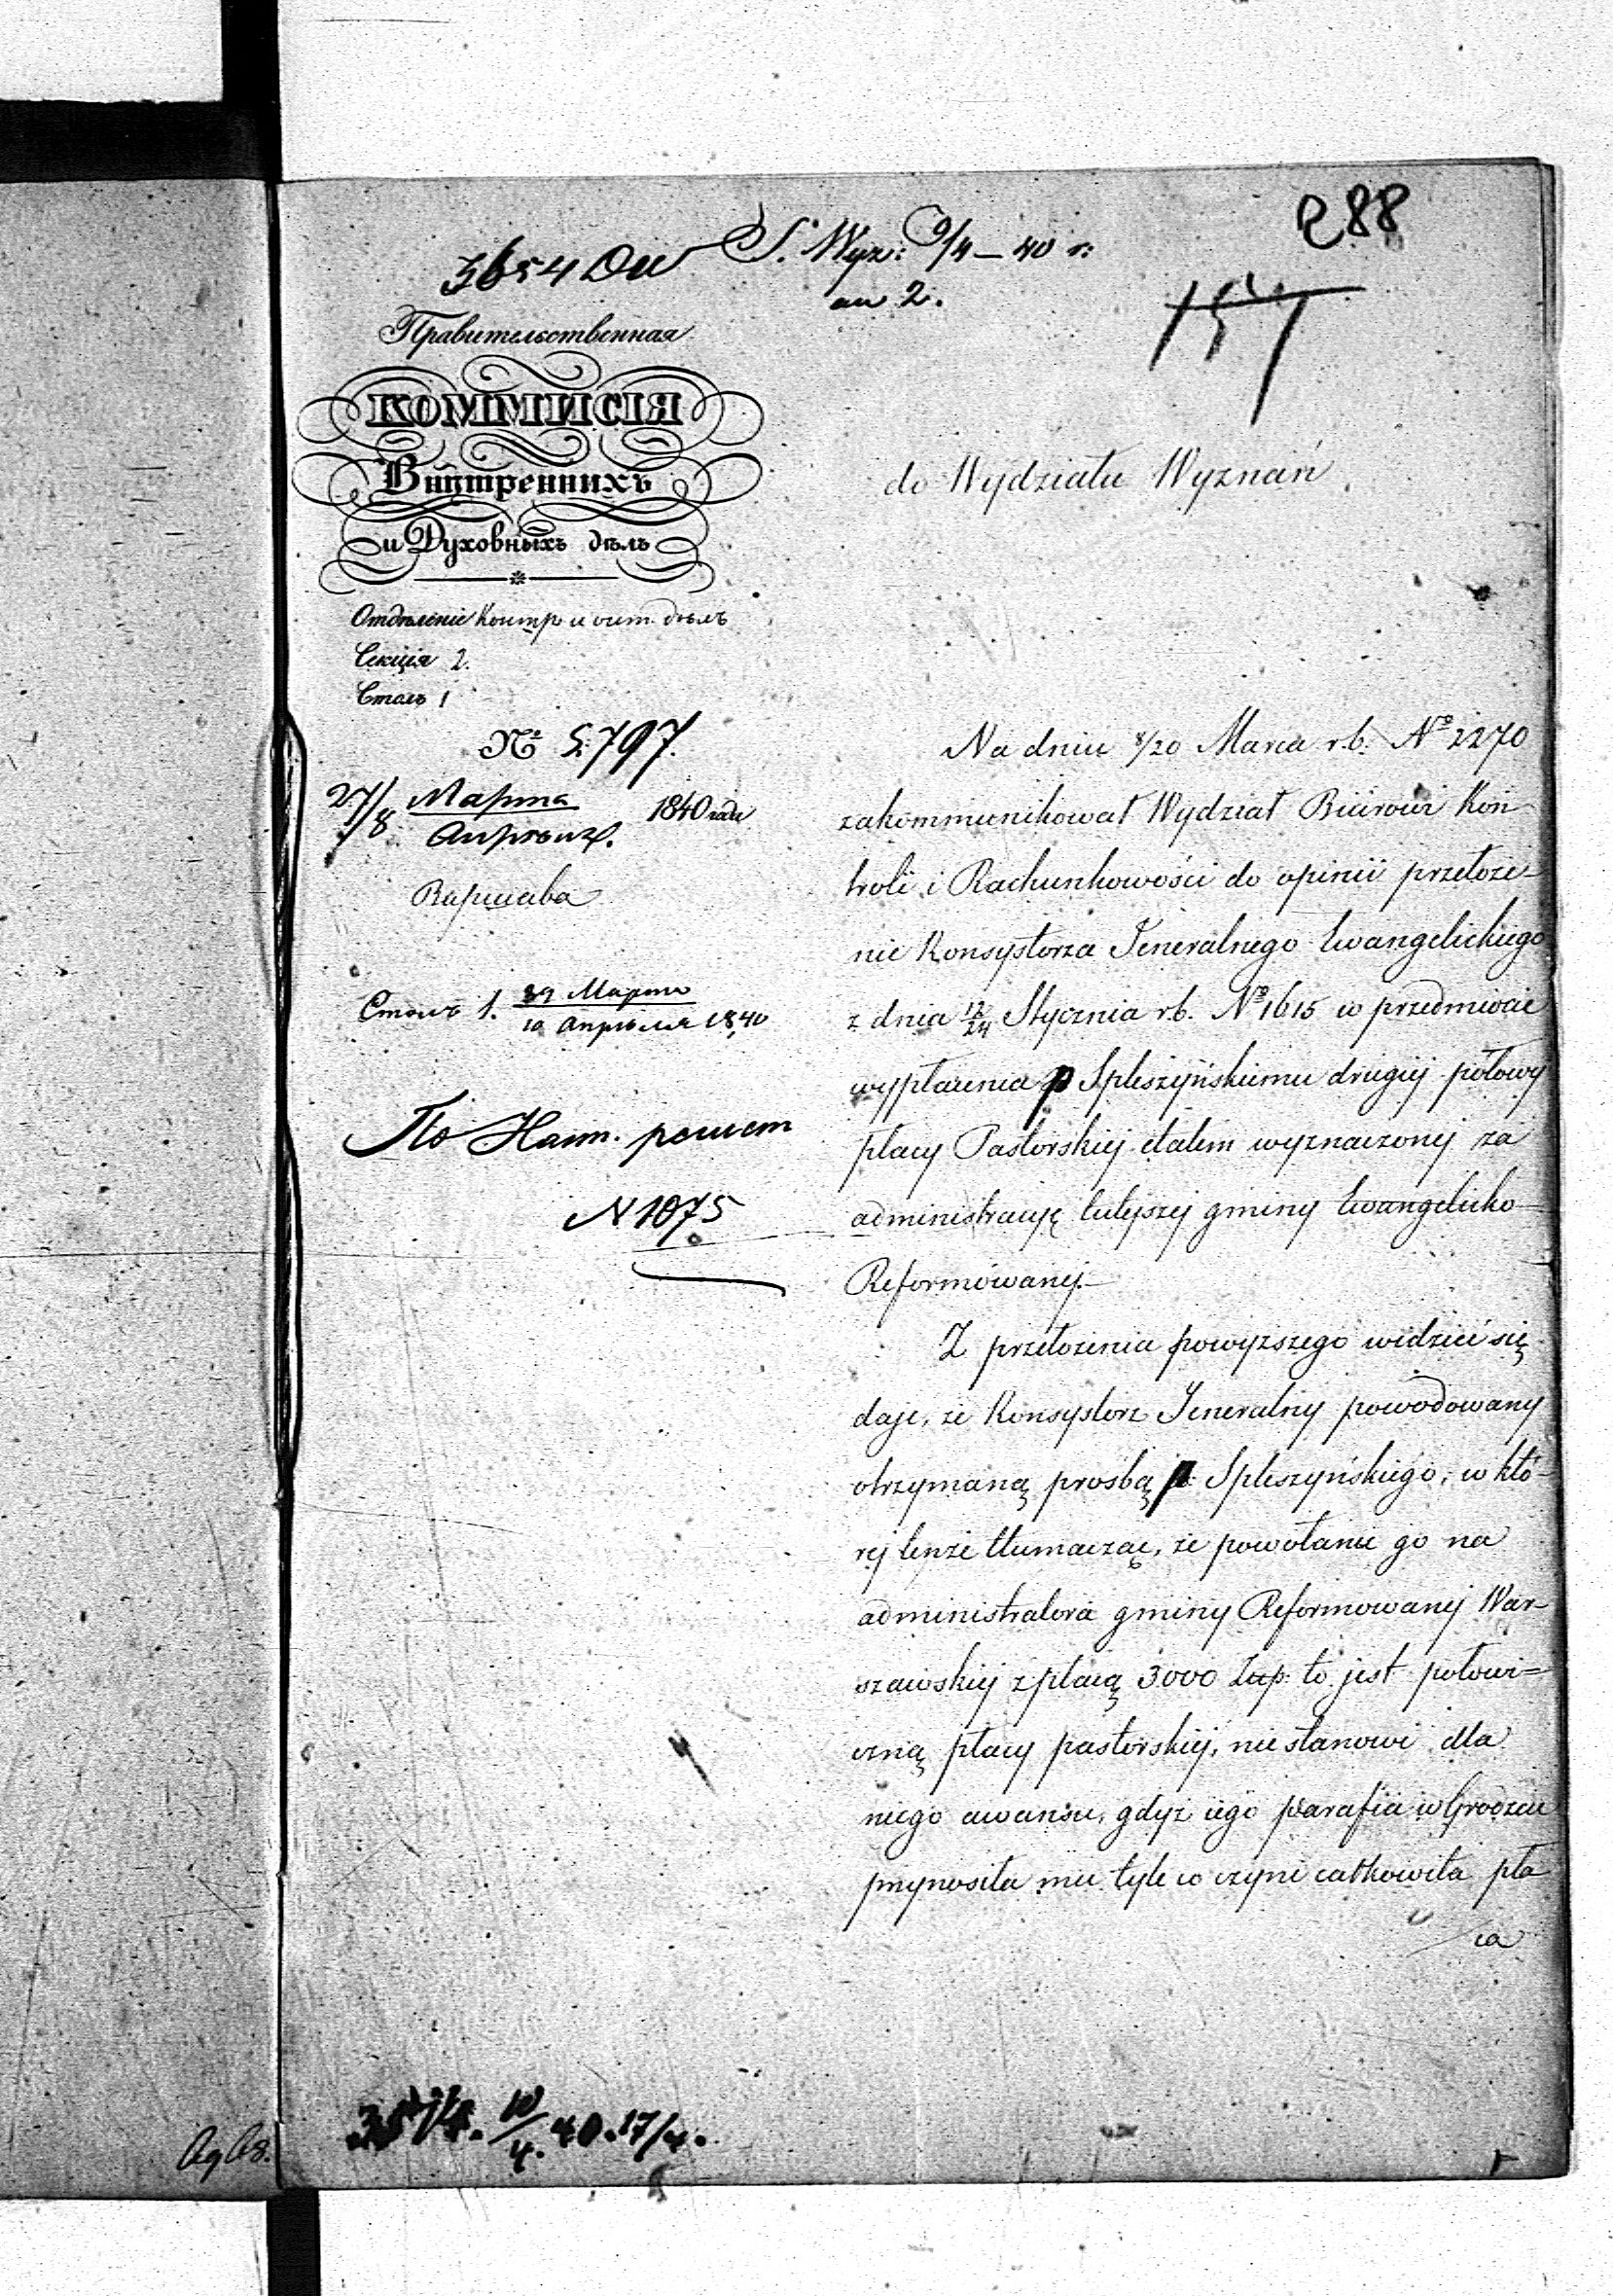 288
3654 DW S. Wyz: 9/4 – 40 r:
an 2.
157
Правительственная
КОММИСІЯ
Внутреннихъ
и Духовныхъ дѣлъ
Отдѣленіе Контр и счет. дѣлъ
Секція 2.
Столъ 1
№ 5797.
27/8 Марта Апрѣля. 1840 года
Варшава
Столъ 1. 29 Марта
10 Апрѣля 1840
По Наст. регист
N 1075
do Wydziału Wyznań
Na dniu 8/20 Marca r.b. Nº 2270
zakommunikował Wydział Biurowi Kon-
troli i Rachunkowości do opinii przełoże-
nie Konsystorza Jeneralnego Ewangelickiego
z dnia 12/24 Stycznia r.b. Nº 1615 w przedmiocie
wypłacenia p Spleszyńskiemu drugiej połowy
płacy Pastorskiej etatem wyznaczonej za
administracyę tutejszej gminy Ewangelicko-
Reformowanej.–
Z przełożenia powyższego widzieć się
daje, że Konsystorz Jeneralny powodowany
otrzymaną prośbą p Spleszyńskiego, w któ-
rej tenże tłumacząc, że powołanie go na
administratora gminy Reformowanej War-
szawskiej z płacą 3000 Złp. to jest połowi=
czną płacy pastorskiej, nie stanowi dla
niego awansu, gdyż iego parafia w Grodzcu
przynosiła mu tyle co czyni całkowita pła
ca
40. 17/4.